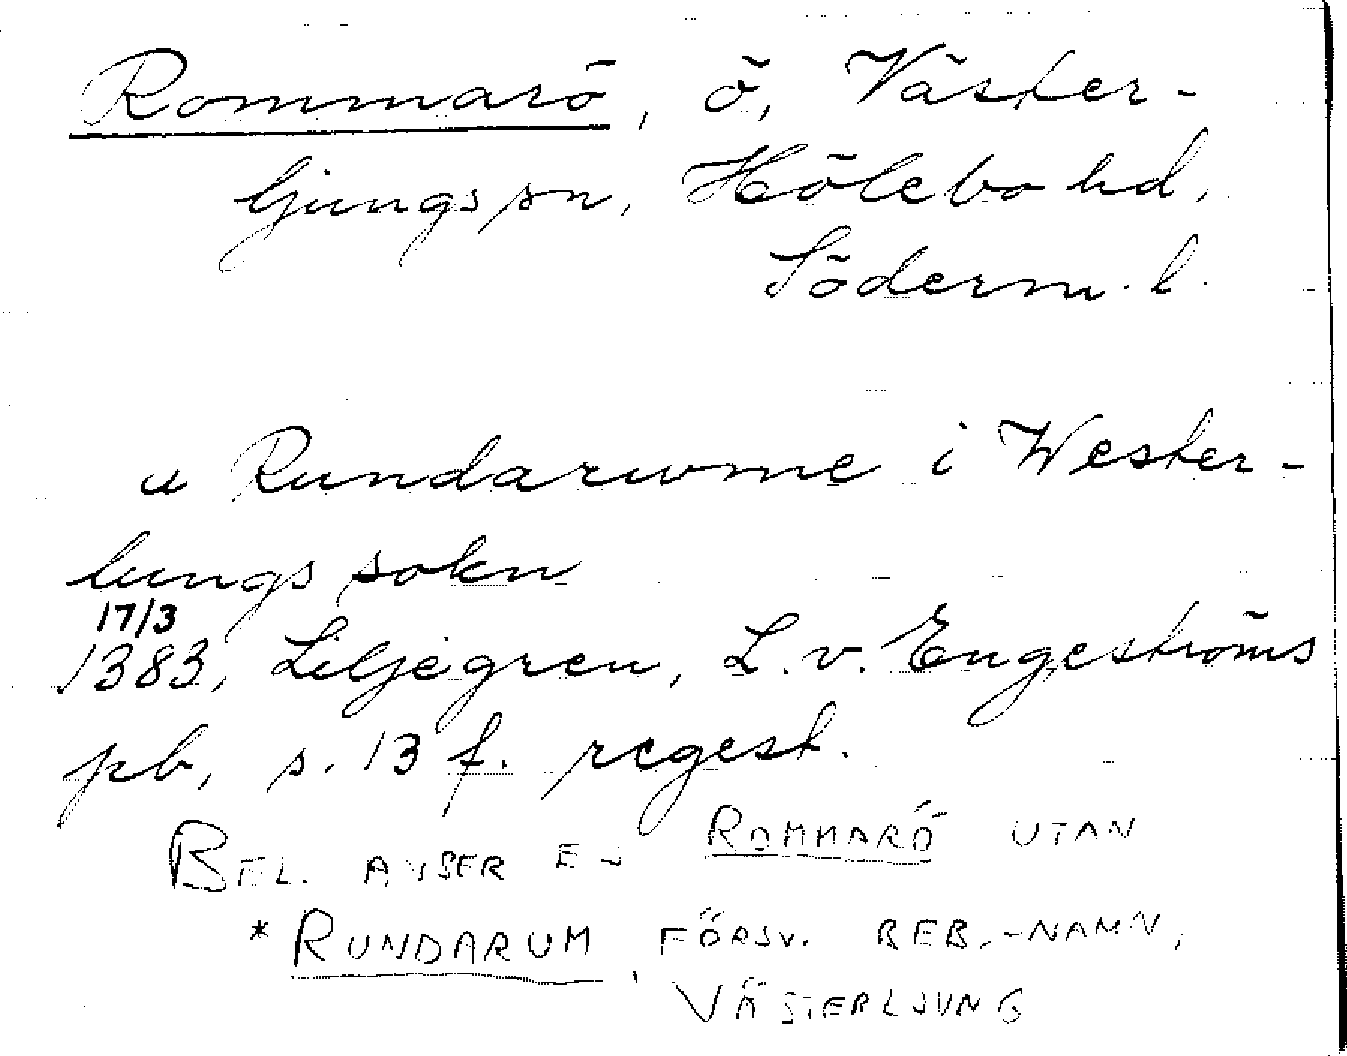 Rommarö, ö, Väster-
ljungs sn, Hölebo hd,
Söderm. l.
u Rundarwme i Wester-
lungs sokn
17/3
1383, Liljegren, L. v. Engeströms
pb, s. 13 f. regest.
BEL. AVSER EJ ROMMARÖ UTAN
*RUNDARUM, FÖRSV. BEB.-NAMN,
VÄSTERLJUNG